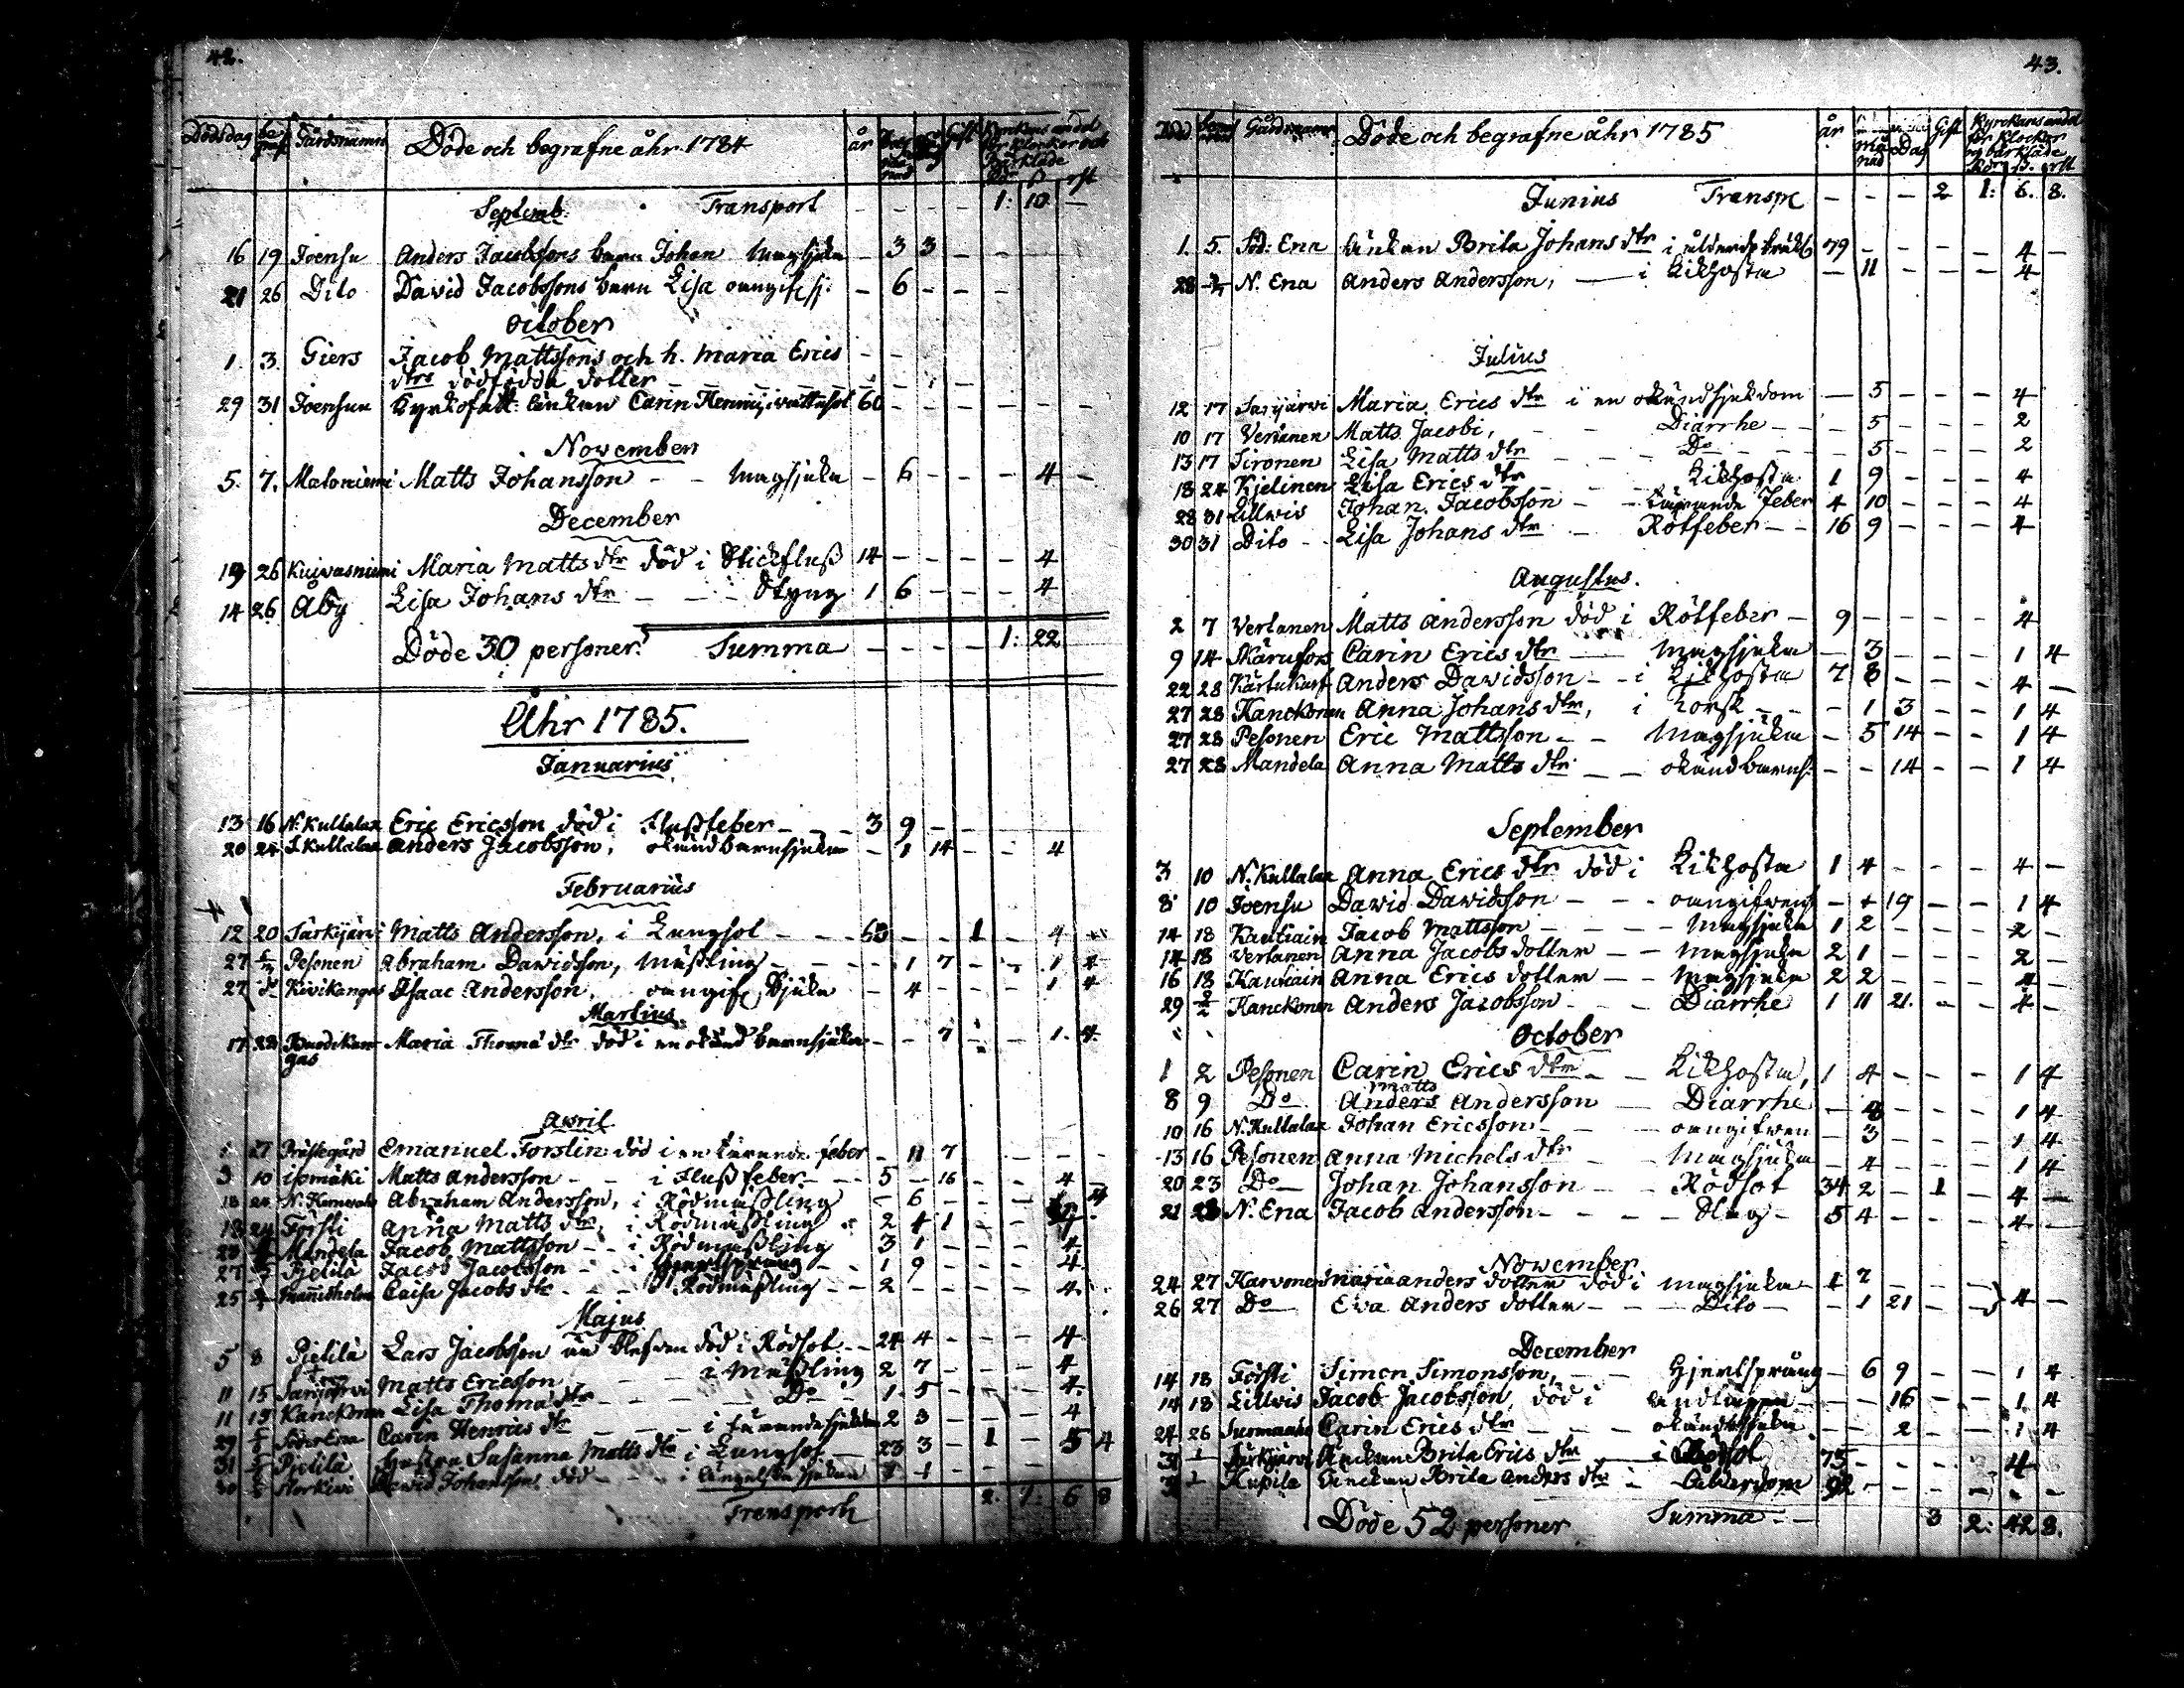 42.
Dödsdag begraf Gårdsnamn Döde och begrafne åhr 1784 år månad dag Gift Kyrkans andel för klockor och Bårkläde Rdr ß rst
Septemb. Transport - - - - 1: 10 -
16 19 Joensu Anders Jacobssons barn Johan Magsjuka - 3 3 - - -
21 26 Dito David Jacobssons barn Lisa oangif. sj. - 6 - - -
October
1. 3. Giers Jacob Mattssons och h. Maria Erics - -
dtrs dödfödda dotter - - - - - -
29 31 Joensuu Kyrkofatt. änkan Carin Henrici, i vattusot 60 - - - - -
November
5. 7. Matoniemi Matts Johansson - - Magsjuka - 6 - - - 4 -
December
19 26 Kuivasniemi Maria Matts dtr död i Stickfluß 14 - - - - 4
14 26 Åby Lisa Johans dtr - - - Styng 1 6 - - - 4
Döde 30 personer. Summa - - - - 1: 22
Åhr 1785.
Januarius
13 16 N. Kullalax Eric Ericsson död i Flußfeber - - - 3 9 - -
20 24 S. Kullalax Anders Jacobsson, okänd barnsjuka - 1 14 - - 4
Februarius
12 20 Särkijärvi Matts Andersson, i Lungsot - - - 63 - - 1 - 4
27 Pesonen Abraham Davidsson, Mäßling - - - - 1 7 - - 1 4
27 do Kivikangas Isaac Andersson, oangif. Sjuka - 4 - - - 1 4
Martius
17 28 Buodikangas Maria Thomæ dtr död i en okänd barnsjuka - - 7 - - 1. 4.
Avril
1 27 Prästegård Emanuel Forslin död i en tärande feber - 11 7 - - -
3 10 isomäki Matts Andersson - - i Flußfeber - - - 5 - 16 - - 4 -
18 24 Abraham Andersson, i Rödmäßling - 6 - - - 4
18 24 Försti Anna Matts dtr, i Rödmäßling 2 4 1 - -
Mandela Jacob Mattsson - - i Rödmäßling 3 1 - - - 4
27 Pjetilä Jacob Jacobsson - - i Hjertsprång - - 1 9 - - - 4
25 Mannisholm Caisa Jacobs dtr - - - Rödmäßling - - 2 - - - - 4.
Majus
5 8 Pjetilä Lars Jacobsson död i Rödsot - - 24 4 - - - 4
11 15 Särkijärvi Matts Ericsson - - - i Mäßling 2 7 - - - 4
11 15 Kanckonen Lisa Thomæ dtr - - - - Do 1 5 - - - 4
29 Söder Ena Carin Henrics dtr - - - i tärande sjukdom 2 3 - - - 4
31 Pjetilä hustru Susanna Matts dtr i Lungsot - 23 3 - 1 - 5 4
30 Storkivi David Johansson, död - - i Engelska sjukan 1 1 - - - -
Transport 2. 1: 6 8
43.
Död Gårdsnamn Döde och begrafne åhr 1785 år månad Dag Gift Kyrckans andel för klockor och bårkläde Rdr ß. rst
Junius Transp - - - 2 1: 6. 8.
1. 5. Söd: Ena änkan Brita Johans dtr i ålderds bräkl. 79 - - - - 4 -
28 N. Ena Anders Andersson, - i Kikhosta - 11 - - - 4
Julius
12 17 Särkijärvi Maria Erics dtr i en okänd sjukdom - 5 - - - 4
10 17 Vertanen Matts Jacobi, - - Diarrhe - - - 5 - - - 2
13 17 Sironen Lisa Matts dtr - - - Do - - - 5 - - - 2
18 24 Kjelinen Lisa Erics dtr - - - Kikhosta 1 9 - - - 4
28 31 Lillwis Johan Jacobsson - - tärande Feber 4 10 - - - 4
30 31 Dito - - Lisa Johans dtr - Rötfeber - - 16 9 - - - 4
Augustus.
2 7 Vertanen Matts Andersson död i Rötfeber - 9 - - - - 4
9 14 Skärufors Carin Erics dtr - Magsjuka - 3 - - - 1 4
22 28 Anders Davidsson - - i Kikhosta 7 8 - - - 4 -
27 28 Kanckonen Anna Johans dtr, i torsk - - - 1 3 - - 1 4
27 28 Pesonen Eric Mattsson - - Magsjuka - 5 14 - - 1 4
27 28 Mandela Anna Matts dtr - - okänd barns. - - 14 - - 1 4
September
3 10 N. Kullalax Anna Erics dtr död i Kikhosta 1 4 - - - 4 -
8 10 Joensu David Davidsson - - - oangifven - + 19 - - 1 4
14 18 Kautiain Jacob Mattsson - - - - Magsjuka 1 2 - - - 2 -
14 18 Vertanen Anna Jacobs dotter - - Magsjuka 2 1 - - - 2 -
16 18 Kautiain Anna Erics dotter - - Magsjuka 2 2 - - - 4 -
29 2 Kanckonen Anders Jacobsson - - - Diarrhe 1 11 21. - - 4 -
October
1 2 Pesonen Carin Erics dtr - - Kikhosta, 1 4 - - - 1 4
Matts
8 9 Do Anders Andersson - Diarrhe - 4 - - - 1 4
10 16 N. Kullalax Johan Ericsson - - - oangifven - 3 - - - 1 4
13 16 Pesonen Anna Michels dtr - - Magsjuka - 4 - - - 1 4
20 23 Do Johan Johansson - - Rödsot 34 2 - 1 - 4 -
21 23 N. Ena Jacob Andersson - - - - Slag - 5 4 - - - 4 -
November
24 27 Karvonen Maria Anders dotter död i magsjuka - 1 2
26 27 Do Eva Anders dotter - - - Dito - - 1 21 - - 4 -
December
14 18 Försti Simon Simonsson, - - Hjertsprång - 6 9 - - 1 4
14 18 Lillwis Jacob Jacobsson, död i andtäppa - - - 16 - - 1 4
24 26 Carin Erics dtr - - - okänd sjuka - - 2 - - 1 4
31 Särkijärvi Änkan Brita Erics dtr - i 75 - - - - 4
31 Kupila änckan Brita Anders dtr - Ålderdom 92 - - - - -
Döde 52 personer Summa - - 3 2: 42 8.